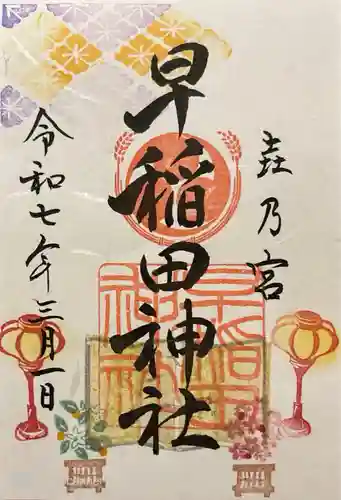 㐂乃宮
早稲田神社
令和七年三月一日